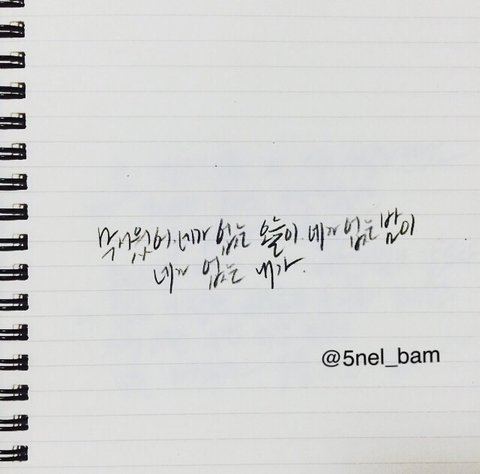 무서웠어. 네가 없는 오늘이. 네가 없는 밤이
네가 없는 내가.
@5nel_bam